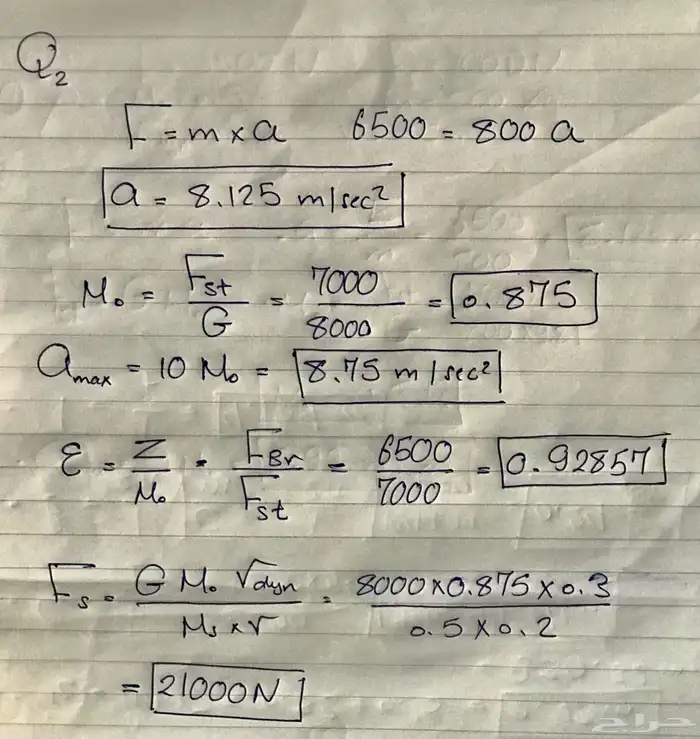 Q₂
F = m x a 6500 = 800 a
a = 8.125 m/sec²
μ₀ = Fst/G = 7000/8000 = 0.875
amax = 10 μ₀ = 8.75 m/sec²
ε = Z/μ₀ = FBr/Fst = 6500/7000 = 0.92857
Fs = G μ₀ rdyn / μs x r = 8000 x 0.875 x 0.3 / 0.5 x 0.2
= 21000N
حراج